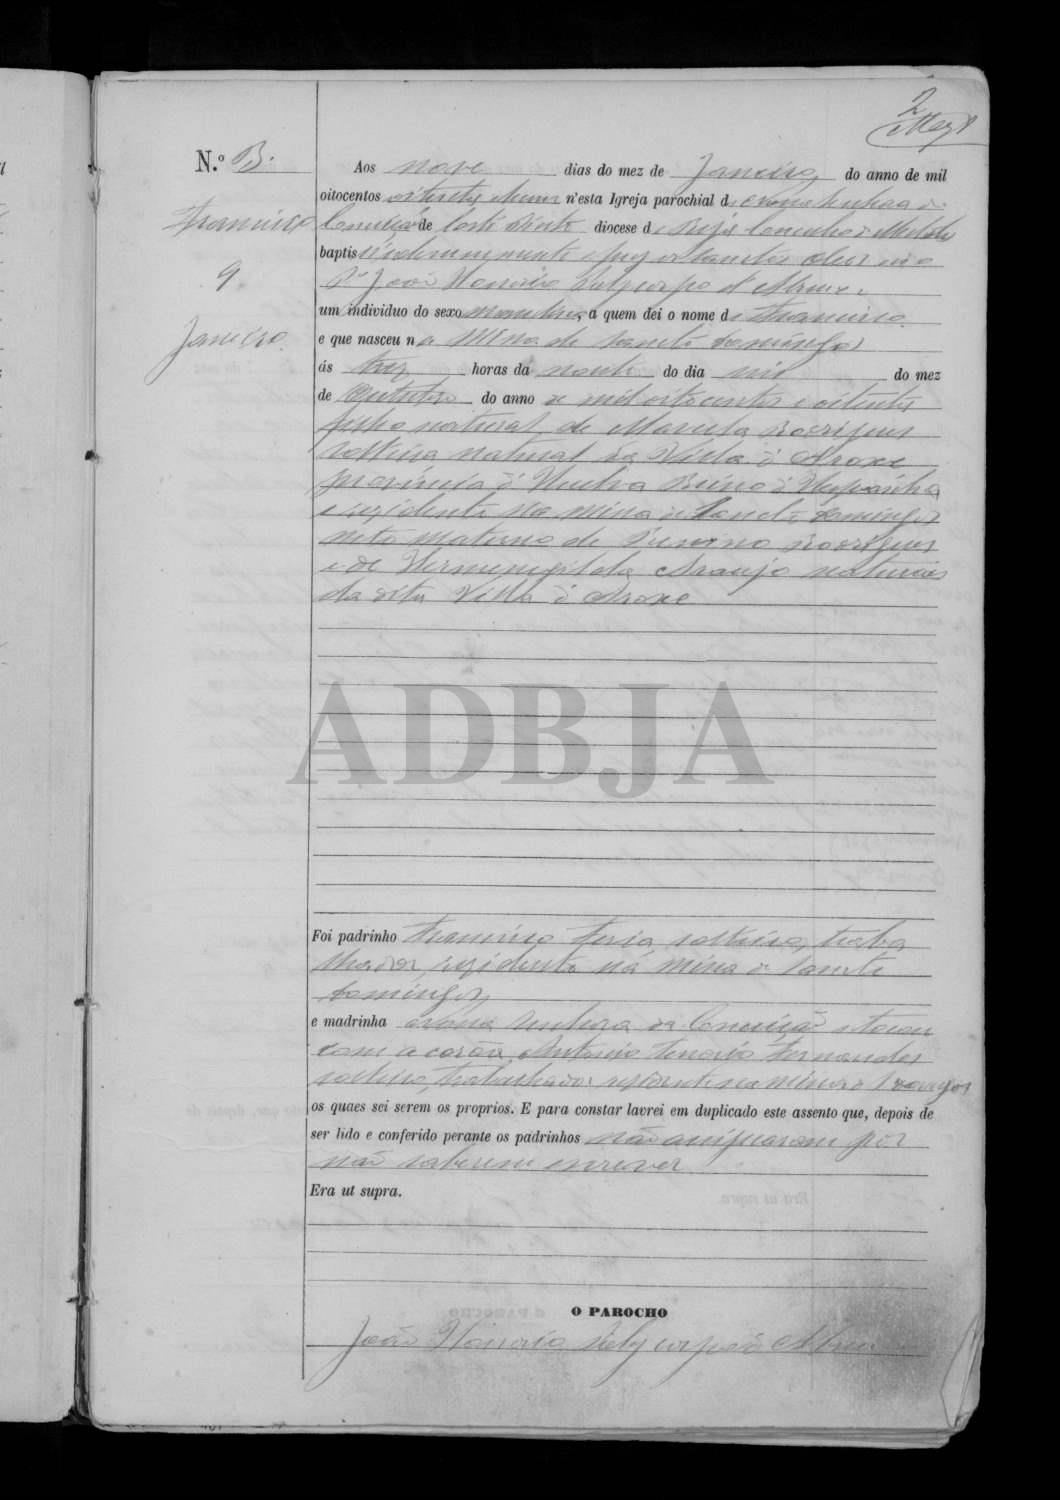 2
N.º 3.
Francisco
9
Janeiro.
Aos nove dias do mez de Janeiro, do anno de mil
oitocentos oitenta e n'esta Igreja parochial de
Conceição de Corte do Pinto diocese de Beja Concelho de Mertola
baptisei solemnemente e puz os sanctos oleos
João Honorio Polycarpo d'Abreu
um individuo do sexo masculino, a quem dei o nome de Francisco
e que nasceu na Mina de Sancto Domingos
ás trez horas da noute do dia seis do mez
de Outubro do anno de mil oitocentos e oitenta
filho natural de Manuela Rodrigues
solteira natural da Villa d'Aroxe
provincia d'Huelva Reino d'Hespanha
e rezidente na mina de Sancto Domingos
neto materno de Rodrigues
e de Hermenegilda Araujo naturaes
da dita Villa d'Aroxe
ADBJA
Foi padrinho Francisco Feria, solteiro, traba
lhador, rezidente na mina de Sancto
Domingos
e madrinha Nossa Senhora da Conceição e tocou
com a corôa, Antonio Tenorio Fernandes
solteiro, trabalhador rezidente na mina de S. Domingos
os quaes sei serem os proprios. E para constar lavrei em duplicado este assento que, depois de
ser lido e conferido perante os padrinhos não assignaram por
não saberem escrever
Era ut supra.
O PAROCHO
João Honorio Polycarpo d'Abreu